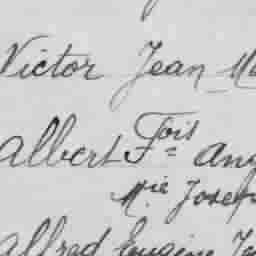 Victor Jean Ma
Albert Fois Ang
Mie Joseph
Alfred Eugène